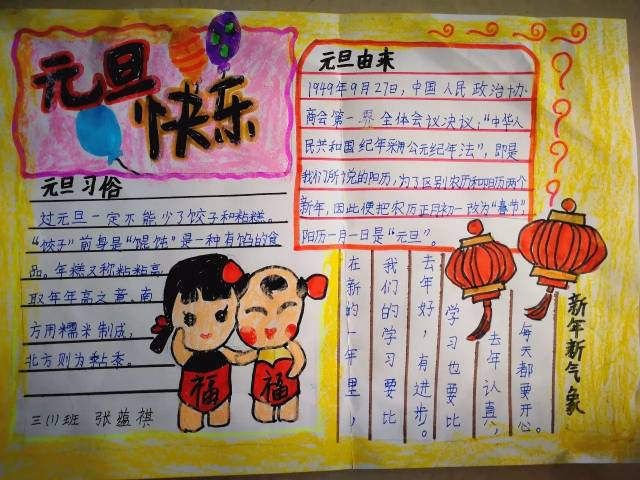 元旦
快乐
元旦习俗
过元旦一定不能少了饺子和粘糕。
“饺子”前身是“馄饨”是一种有馅的食
品。年糕又称粘粘高,
取年年高之意。南
方用糯米制成,
北方则为黏黍。
三(1)班 张蕴祺
福
福
元旦由来
1949年9月27日,中国人民政治协
商会第一界全体会议决议:“中华人
民共和国纪年采用公元纪年法”,即是
我们所说的阳历,为了区别农历和阳历两个
新年,因此便把农历正月初一改为“春节”,
阳历一月一日是“元旦”。
在新的一年里,
我们的学习要比
去年好,有进步。
学习也要比
去年认真,
每天都要开心。
新年新气象